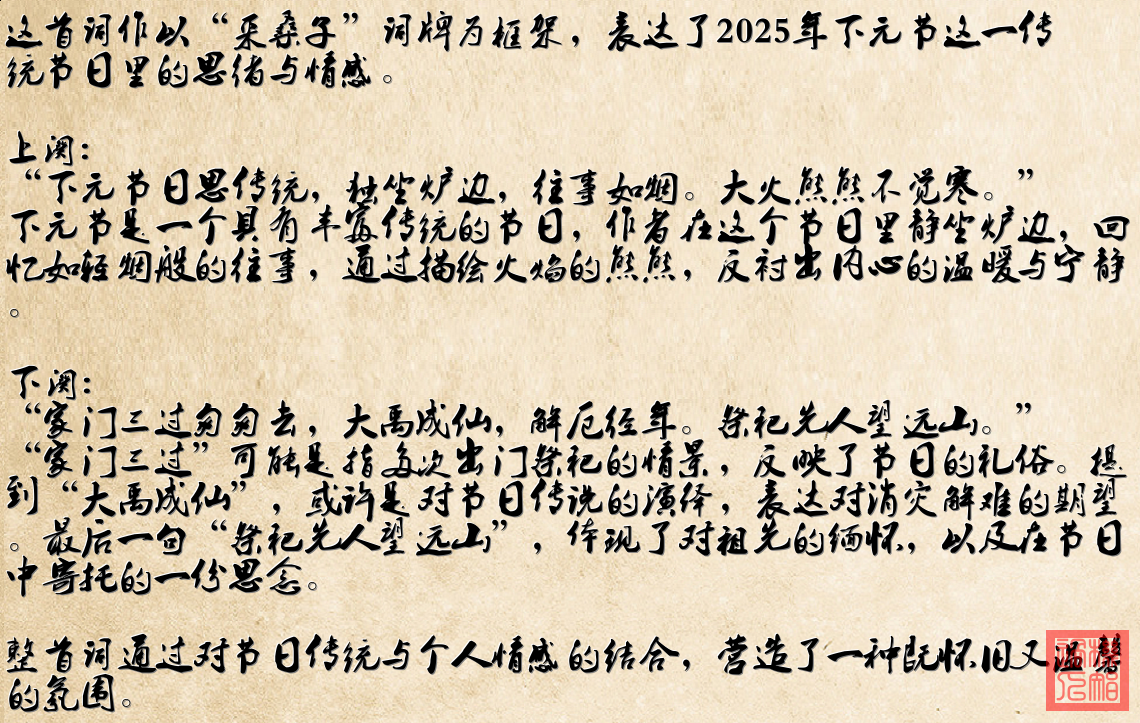 这首词作以“采桑子”词牌为框架，表达了2025年下元节这一传
统节日里的思绪与情感。
上阕：
“下元节日思传统，独坐炉边，往事如烟。大火熊熊不觉寒。”
下元节是一个具有丰富传统的节日，作者在这个节日里静坐炉边，回
忆如轻烟般的往事，通过描绘火焰的熊熊，反衬出内心的温暖与宁静
。
下阕：
“家门三过匆匆去，大禹成仙，解厄经年。祭祀先人望远山。”
“家门三过”可能是指每次出门祭祀的情景，反映了节日的礼俗。提
到“大禹成仙”，或许是对节日传说的演绎，表达对消灾解难的期望
。最后一句“祭祀先人望远山”，体现了对祖先的缅怀，以及在节日
中寄托的一份思念。
整首词通过对节日传统与个人情感的结合，营造了一种既怀旧又温馨
的氛围。